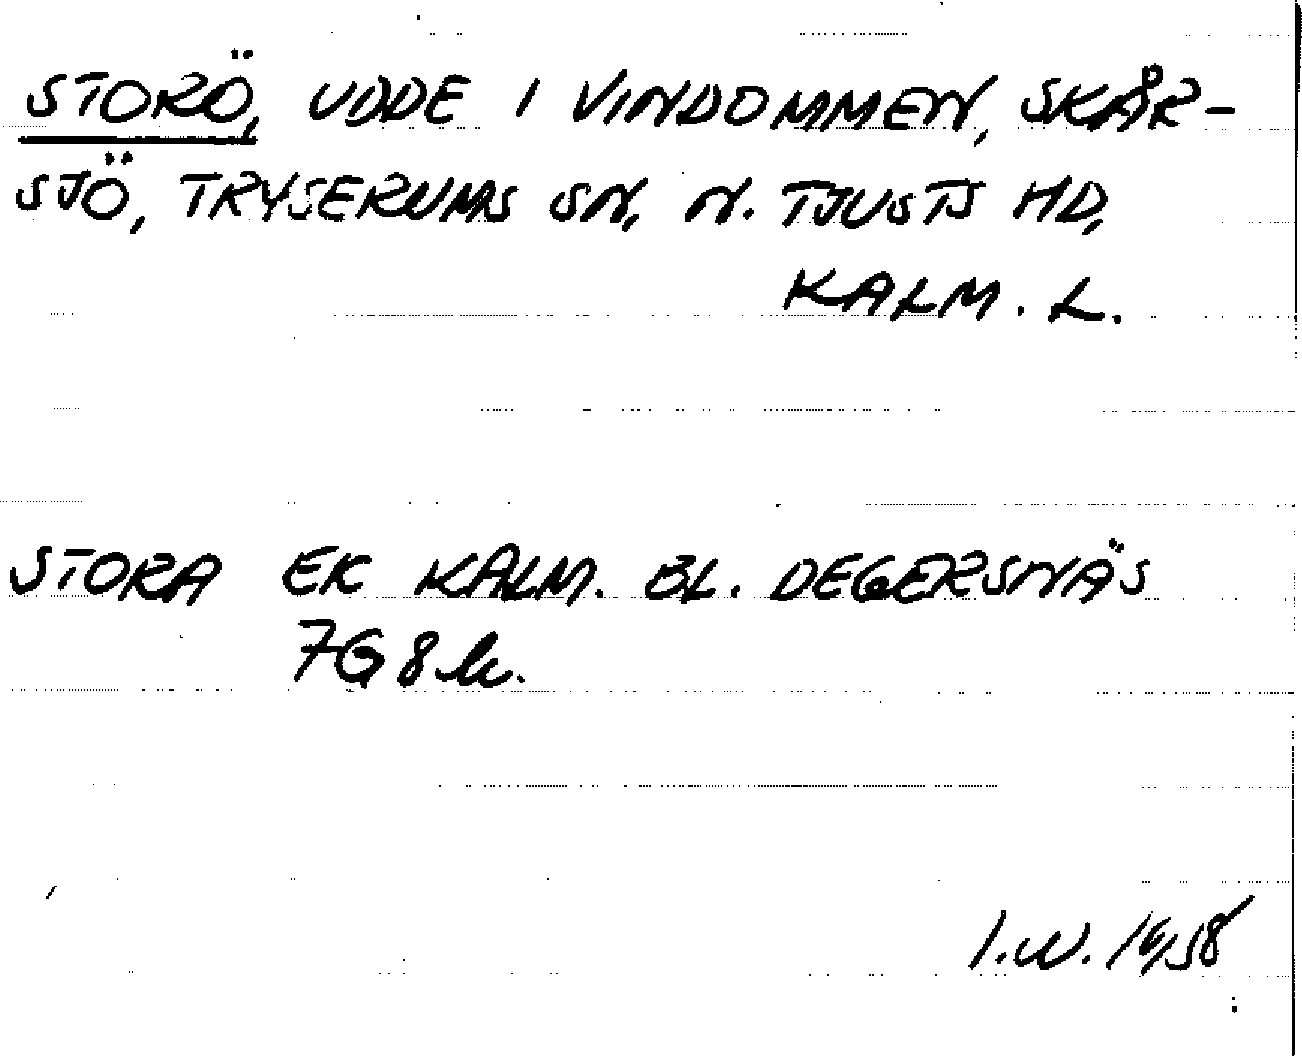 STORÖ, UDDE I VINDOMMEN, SKÅR-
SJÖ, TRYSERUMS SN, N. TJUSTS HD,
KALM. L.
STORA EK KALM. BL. DEGERSNÄS
7G 8
I.W.